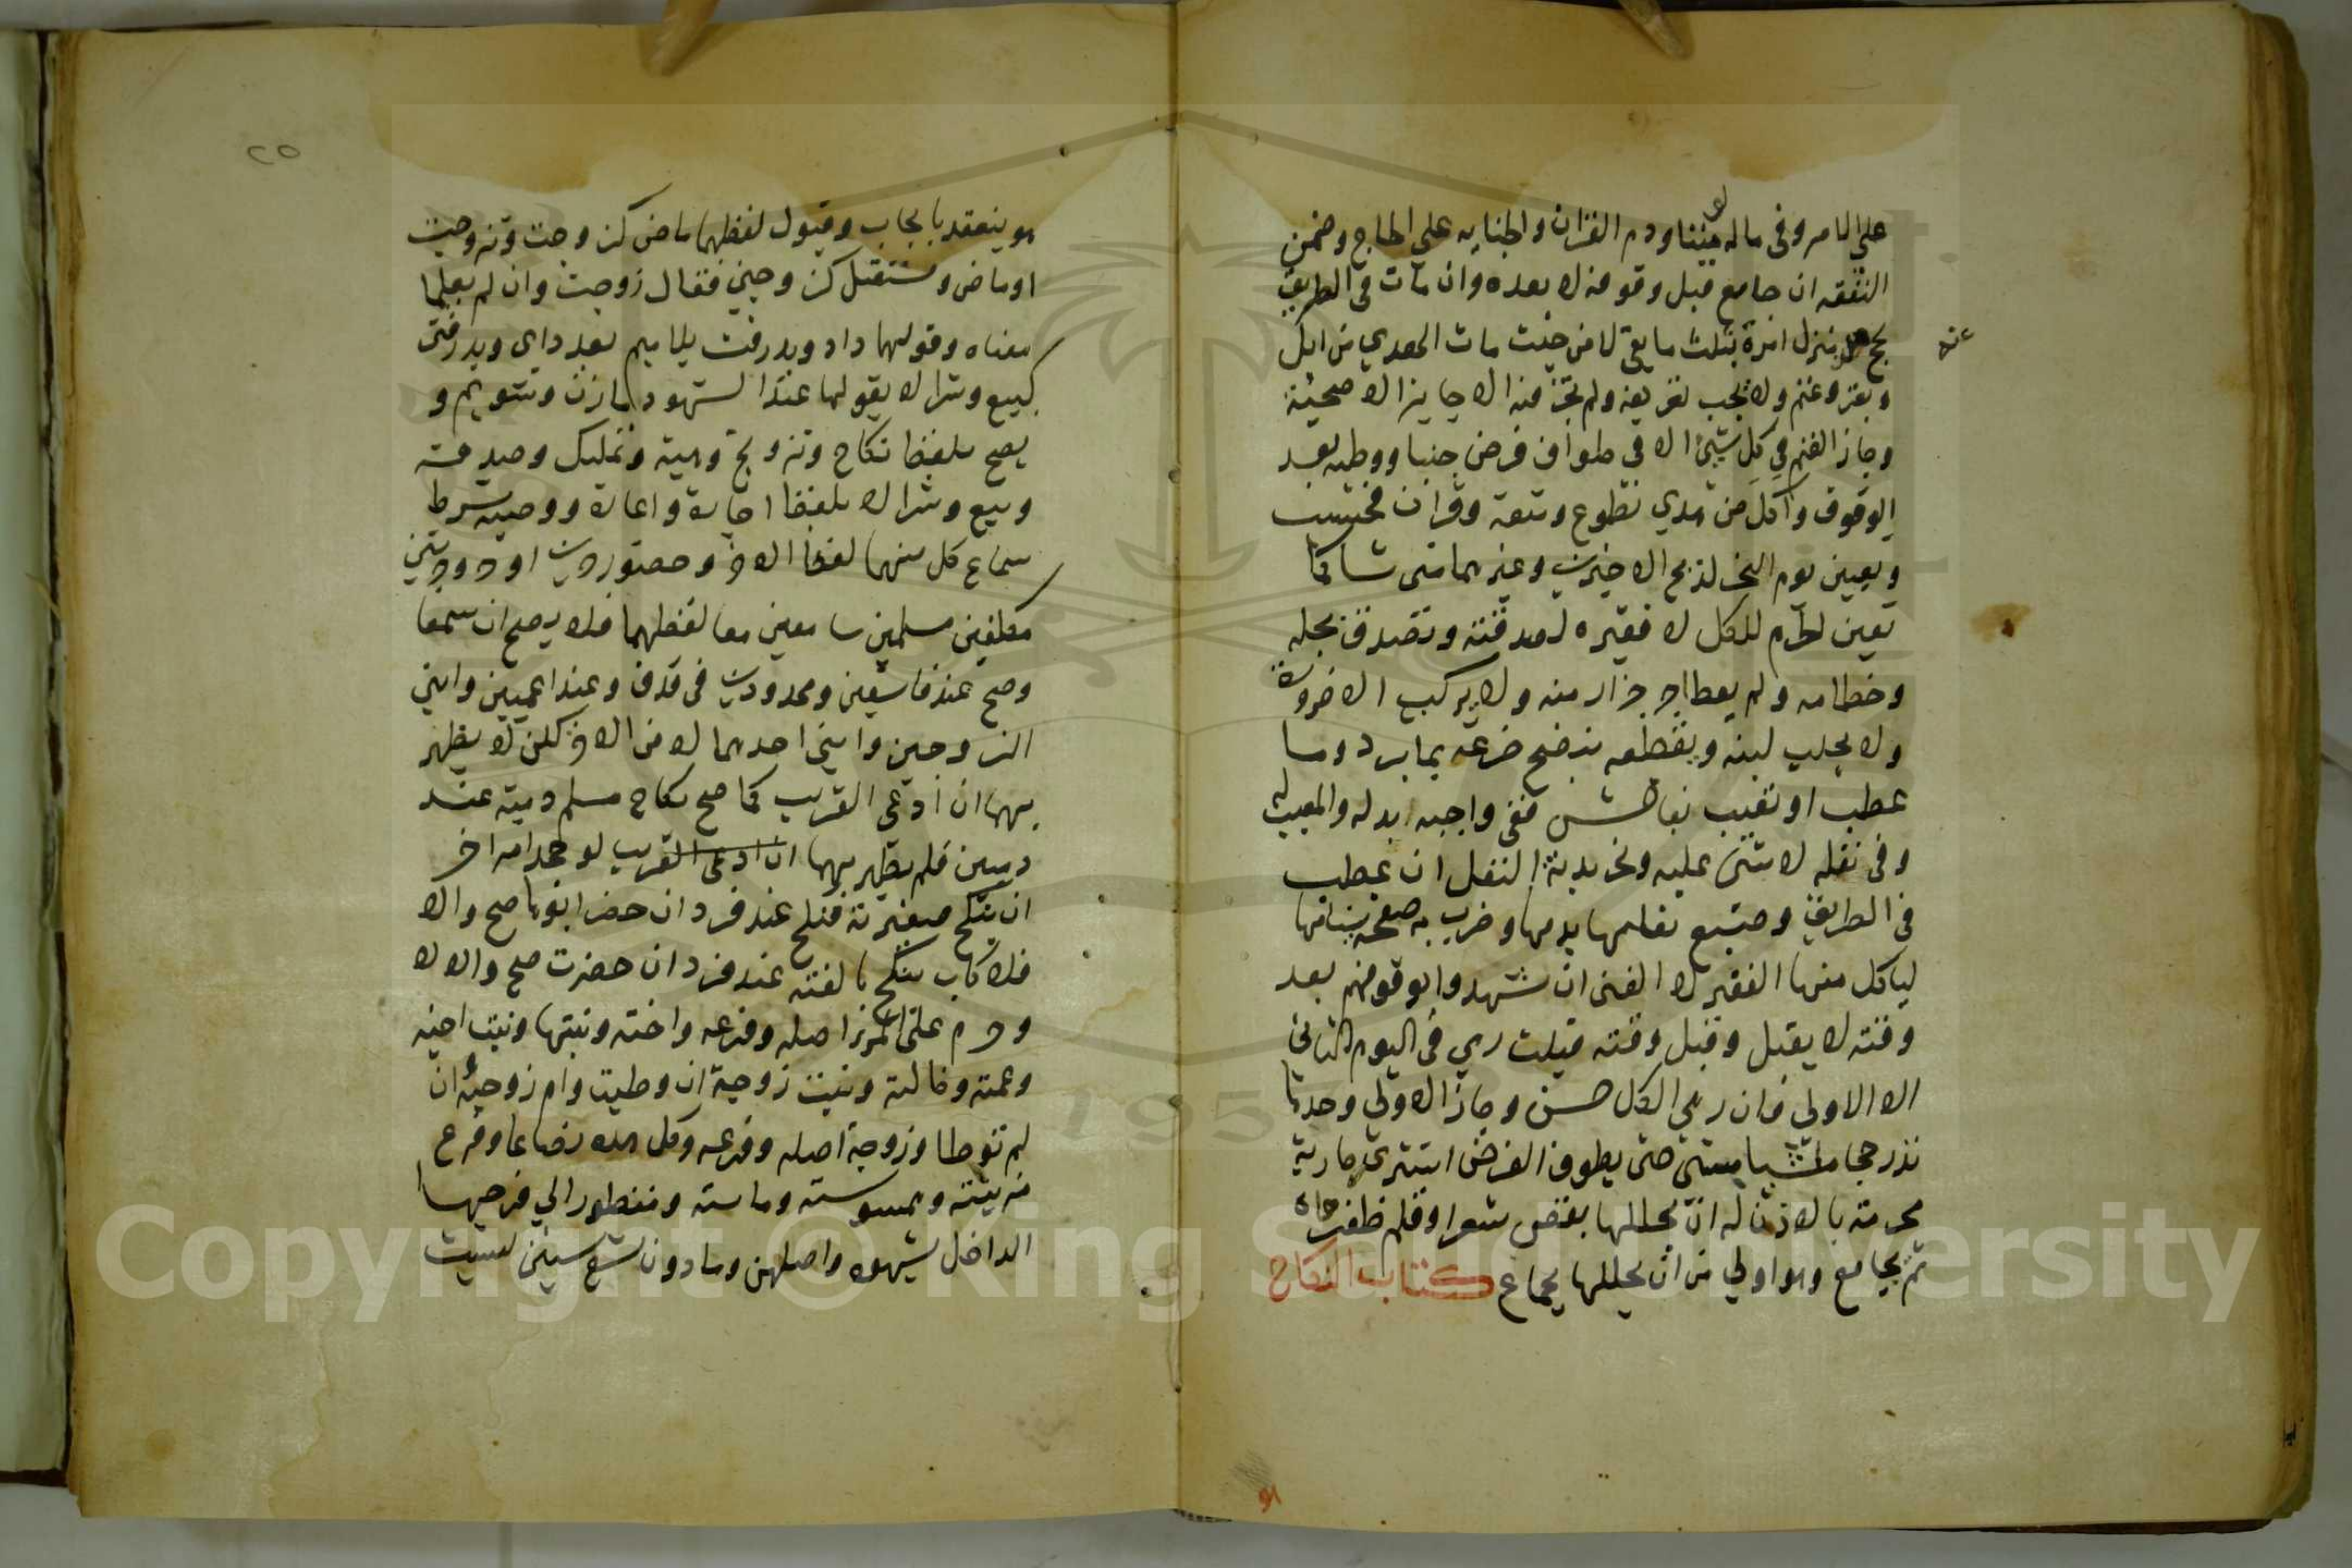 على الامر وفى ماله لو ميتا ودم القران والجناية على الحاج وضمن
النفقه ان جامع قبل وقوفه لا بعده وان مات فى الطريق
يحج عنه من منزل امرة بثلث ما بقى لا من حيث مات الهدي من ابل
وبقر وغنم ولا يجب تعريفه ولم يجز فيه الا جايز الاضحية
وجاز الغنم في كل شيئ الا فى طواف فرض جنبا ووطيه بعد
الوقوف واكل من هدي تطوع ومتعة وقران فحسب
وتعين يوم النحر لذبح الاخيرين وغيرهما متى شا كما
تعين الحرم للكل لا فقيره لصدقته وتصدق بجله
وخطامه ولم يعط اجر جزار منه ولا يركب الا ضرورة
ولا يحلب لبنه ويقطعه بنضح ضرعه بما برد وما
عطب او تعيب بفاحش ففى واجبه ابدله والمعيب له
وفى نفله لا شئ عليه ونحر بدنة النفل ان عطب
فى الطريق وصبغ نعلها بدمها وضرب به صفحة سنامها
لياكل منها الفقير لا الغنى ان شهدوا بوقوفهم بعد
وقته لا يقبل وقبل وقته قبلت رمي فى اليوم الثانى
الا الاولى فان رمى الكل حسن وجاز الاولى وحدها
نذر حجا ماشيا مشى حتى يطوف الفرض اشترى جارية
محرمة بالاذن له ان يحللها بقص شعر او قلم ظفر
ثم يجامع وهو اولي من ان يحللها بجماع كتاب النكاح
٢٥
هو ينعقد بايجاب وقبول لفظهما ماض كزوجت وتزوجت
او ماض ومستقبل كزوجني فقال زوجت وان لم يعلما
معناه وقولهما داد وپذرفت بلا ميم بعد دادي وپذرفتى
كبيع وشرا لا بقولهما عند الشهود مازن وشويم و
يصح بلفظ نكاح وتزويج وهبة وتمليك وصدقة
وبيع وشرا لا بلفظ اجارة واعارة ووصيه شرط
سماع كل منهما لفظ الاخر وحضور حرين او حر وحرتين
مكلفين مسلمين سامعين معا لفظهما فلا يصح ان سمعا
وصح عند فاسقين ومحدودين فى قذف وعند اعميين وابنى
الزوجين وابنى احدهما لا من الاخر لكن لا يظهر
بهما ان ادعى القريب كما صح نكاح مسلم ذمية عند
ذميين فلم يظهر بهما ان ادعى القريب لو جحد امر اخر
ان ينكح صغيرته فنكح عند فرد ان حضر ابوها صح والا
فلا كاب ينكح بالغته عند فرد ان حضرت صح والا لا
وحرم على المرء اصله وفرعه واخته وبنتها وبنت اخيه
وعمته وخالته وبنت زوجة ان وطيت وام زوجته ان
لم توطا وزوجة اصله وفرعه وكل هذه رضاعا وفرع
مزنيته وممسوسته وماسته ومنظور الي فرجها
الداخل بشهوه واصلهن وما دون تسع سنين ليست